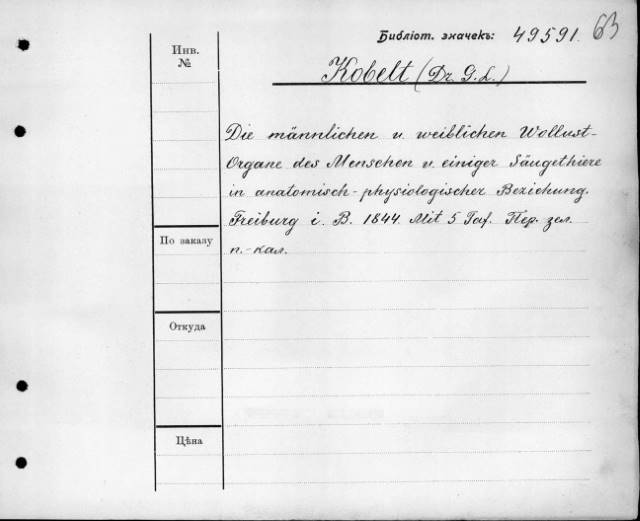 Библіот. значекъ: 49591. 63
Инв.
№
Kobelt (Dr. G. L.)
Die männlichen u. weiblichen Wollust-
Organe des Menschen u. einiger Säugethiere
in anatomisch-physiologischer Beziehung.
Freiburg i. B. 1844. Mit 5 Taf. Пер. зел.
п.-кал.
По заказу
Откуда
Цѣна